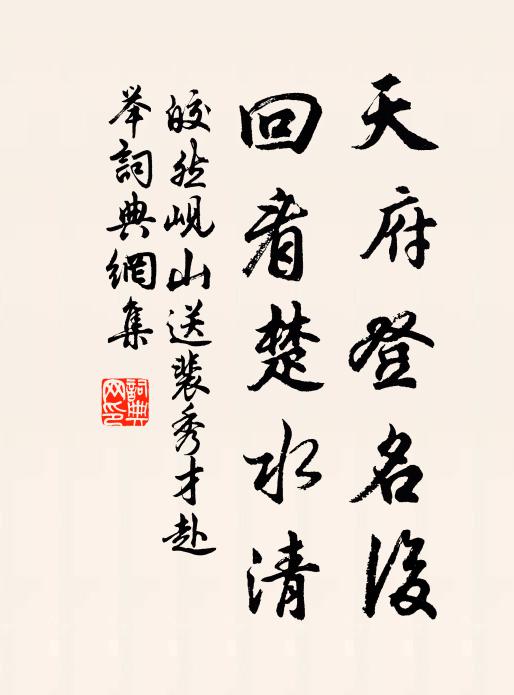 天府登名後
回看楚水清
皎然峴山送裴秀才赴
举詞典網集
詞典网印